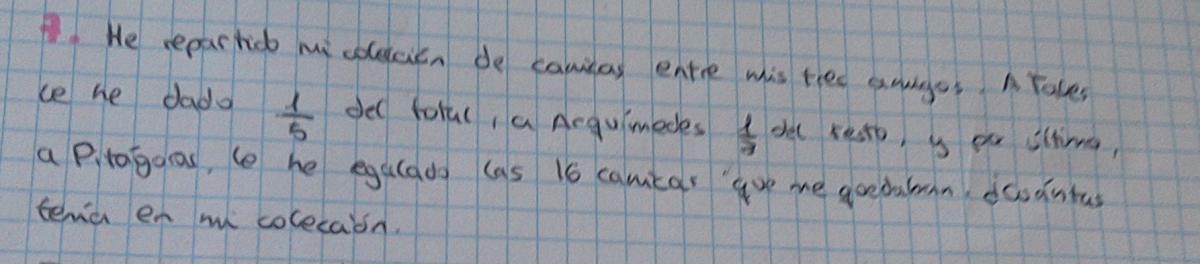 7. He repartido mi colección de canicas entre mis tres amigos. A Tales
le he dado 1/5 del total, a Arquímedes 1/3 del resto, y por último,
a Pitágoras, le he egalado las 16 canicas que me quedaban. ¿Cuántas
tenía en mi colecación.